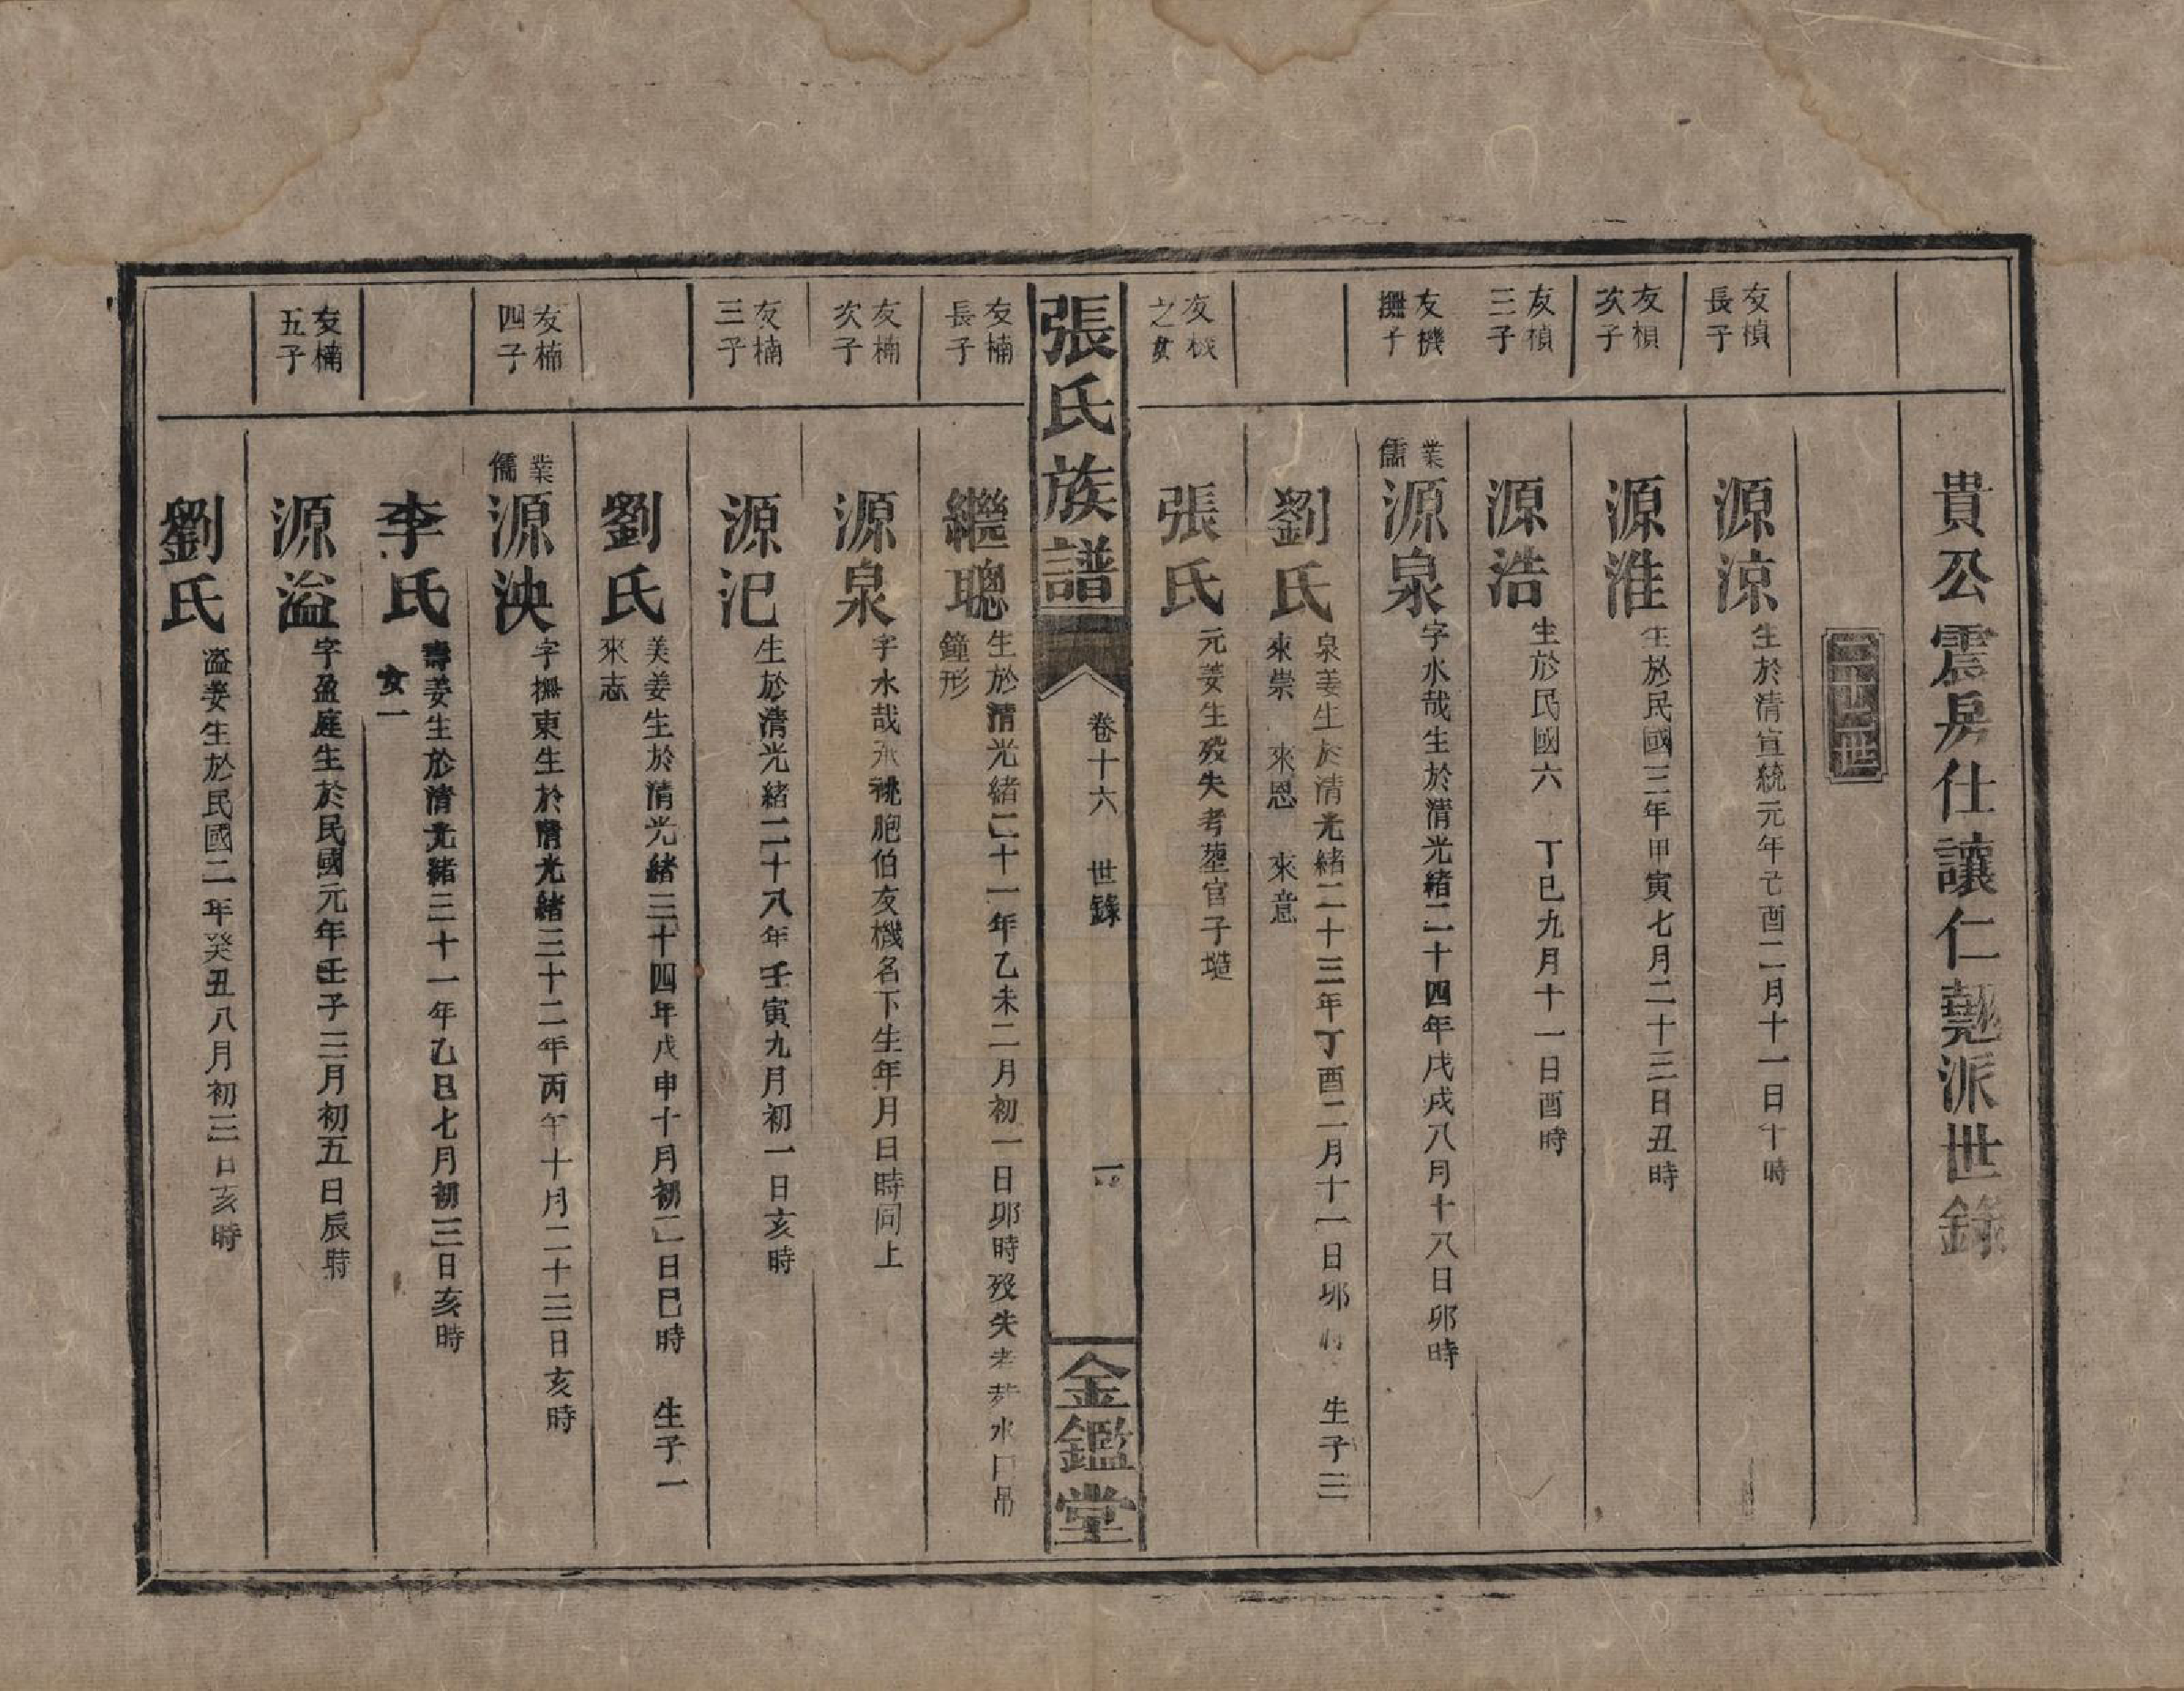 貴公震房仕讓仁𫇦派世錄
二十二世
友楨長子
源涼 生於清宣統元年己酉二月十一日十時
友楨次子
源淮 生於民國三年甲寅七月二十三日丑時
友楨三子
源浩 生於民國六 丁巳九月十一日酉時
友機撫子
業儒 源泉 字水哉生於清光緒二十四年戊戌八月十八日卯時
劉氏 泉妻生於清光緒二十三年丁酉二月十一日卯時 生子三
來崇 來恩 來意
友機之女
張氏 元妻生歿失考塟官子塆
張氏族譜 卷十六 世錄 一 金鑑堂
友楠長子
繼聰 生於清光緒二十一年乙未二月初一日卯時歿失考葬水口吊
鐘形
友楠次子
源泉 字水哉承祧胞伯友機名下生年月日時同上
友楠三子
源汜 生於清光緒二十八年壬寅九月初一日亥時
劉氏 美妻生於清光緒三十四年戊申十月初二日巳時 生子一
來志
友楠四子
業儒 源泱 字撫東生於清光緒三十二年丙午十月二十三日亥時
李氏 壽妻生於清光緒三十一年乙巳七月初三日亥時
女一
友楠五子
源溢 字盈庭生於民國元年壬子三月初五日辰時
劉氏 溢妻生於民國二年癸丑八月初三日亥時